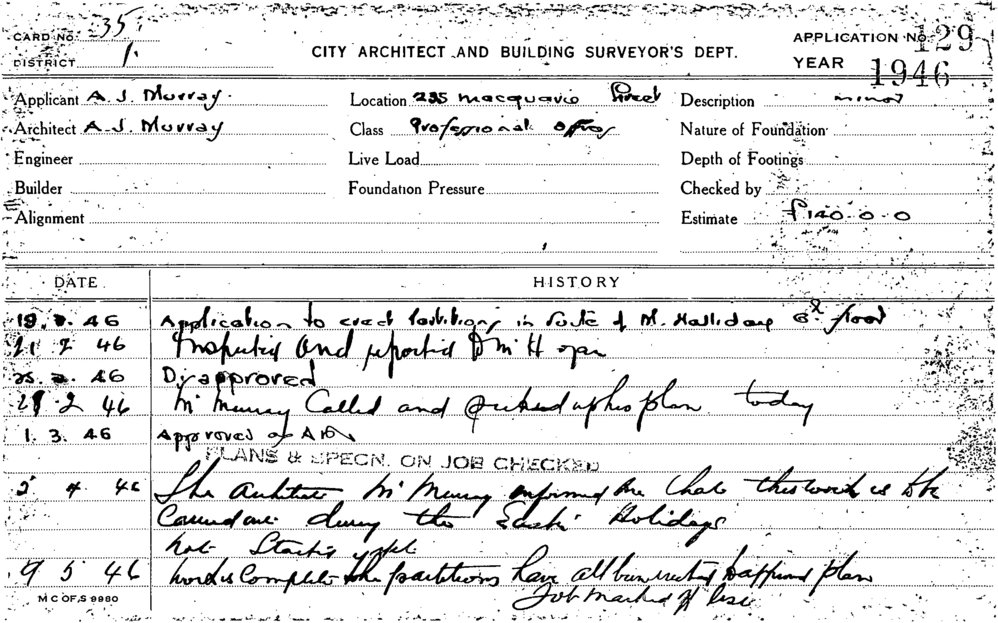 CARD NO. 35
DISTRICT 1.
CITY ARCHITECT AND BUILDING SURVEYOR'S DEPT.
APPLICATION No. 129
YEAR 1946
Applicant A. J. Murray. Location 235 Macquarie Street Description minor
Architect A. J. Murray Class Professional offices Nature of Foundation
Engineer Live Load Depth of Footings
Builder Foundation Pressure Checked by
Alignment Estimate £140.0.0
DATE HISTORY
19. 2. 46 Application to erect partitions in suite of M. Halliday 6th floor
21 2 46 Inspected and reported to Mr
25. 2. 46 Disapproved
28 2 46 Mr Murray Called and picked up his plan today
1. 3. 46 Approved
PLANS & SPECN. ON JOB CHECKED
2 4 46 The Architect Mr Murray informed me that this work is to be
Carried out during the Easter Holidays
not Started yet
9 5 46 Work is Complete the partitions have all been erected to approved plan
Job marked off
M C OF. S 9980